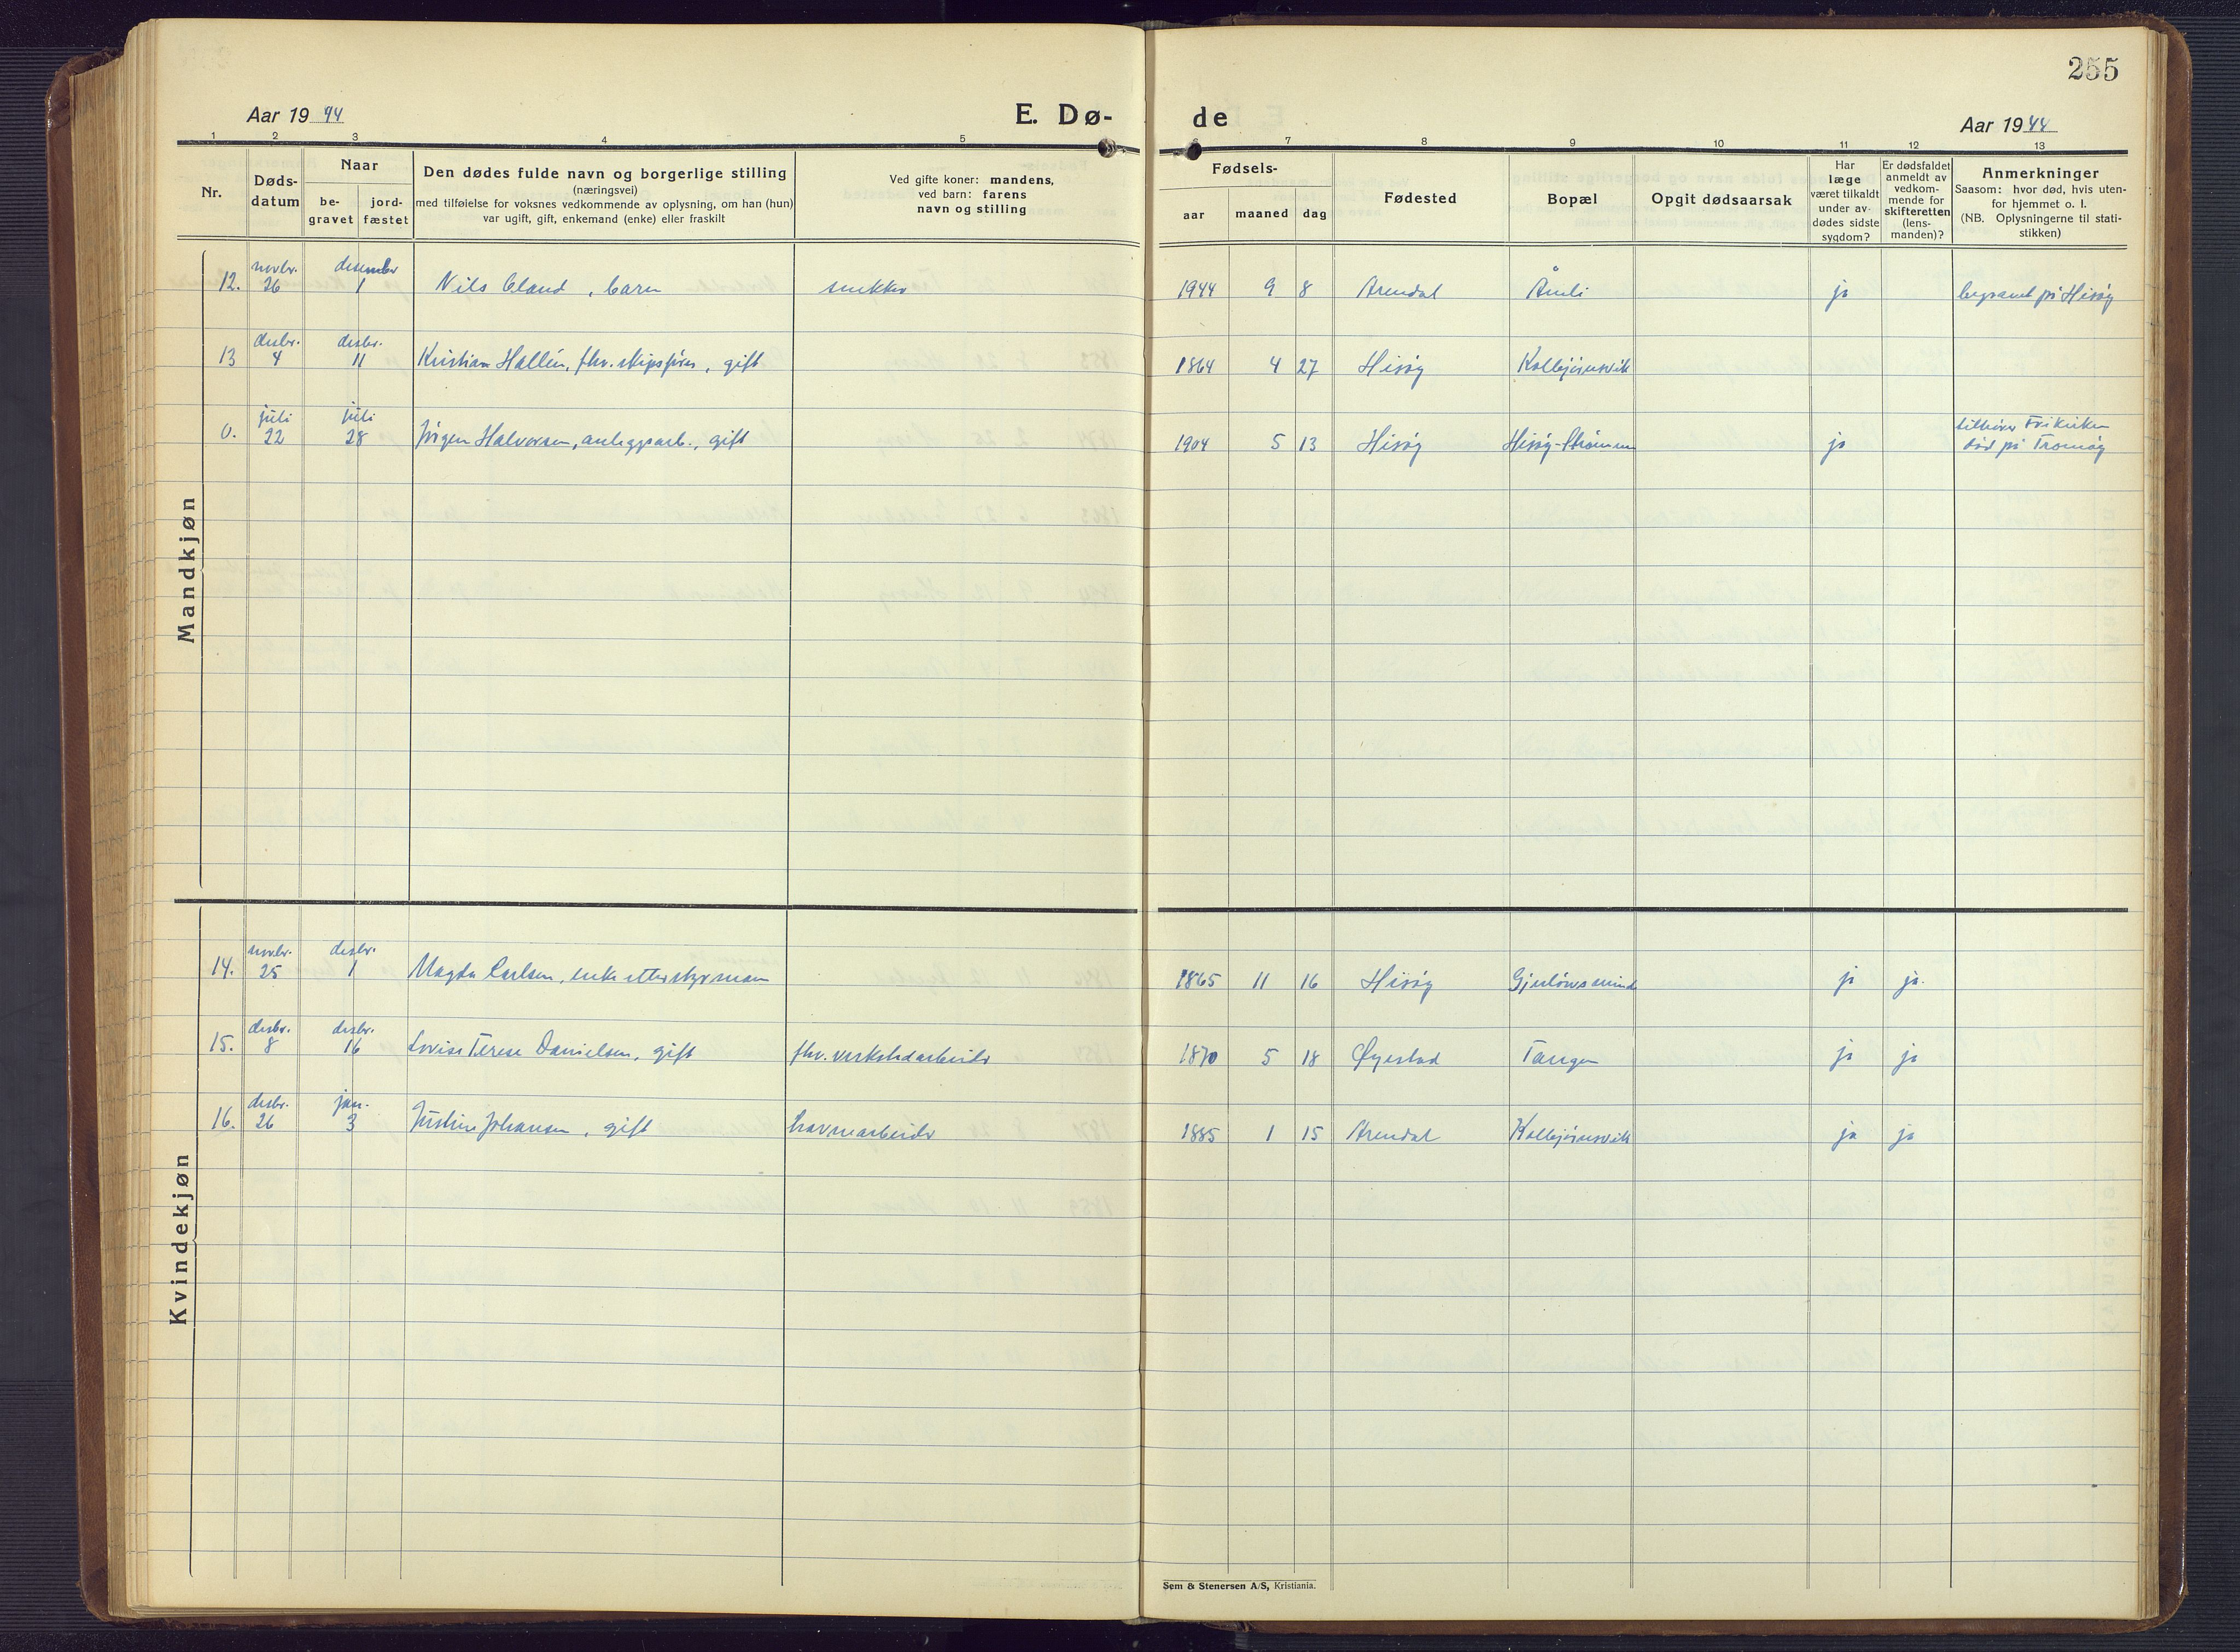 255
Aar 1944
E. Dø-
de
Aar 1944
1 2 3 4 5
6 7 8 9 10 11 12 13
Nr.
Døds-
datum
Naar
be-
gravet
jord-
fæstet
Den dødes fulde navn og borgerlige stilling
(næringsvei)
med tilføielse for voksnes vedkommende av oplysning, om han (hun)
var ugift, gift, enkemand (enke) eller fraskilt
Ved gifte koner: mandens,
ved barn: farens
navn og stilling
Fødsels-
aar maaned dag
Fødested
Bopæl
Opgit dødsaarsak
Har
læge
været tilkaldt
under av-
dødes sidste
sygdom?
Er dødsfaldet
anmeldt av
vedkom-
mende for
skifteretten
(lens-
manden)?
Anmerkninger
Saasom: hvor død, hvis uten-
for hjemmet o. l.
(NB. Oplysningerne til stati-
stikken)
Mandkjøn
novbr. desember
12. 26 1 Nils Oland, barn snekker 1944 9 8 Arendal Åmli ja begravet på Hisøy
desbr. desbr.
13 4 11 Kristian Hallén, fhv. skipsfører, gift 1864 4 27 Hisøy Kolbjørnsvik
juli juli
0. 22 28 Jørgen Halvorsen, anleggsarb., gift 1904 5 13 Hisøy Hisøy-Strømmen ja
tilhører Frikirken
død på Tromøy
Kvindekjøn
novbr. desbr.
14. 25 1 Magda Carlsen, enke etter styrmann 1865 11 16 Hisøy Gjerløwsminde ja ja.
desbr. desbr.
15. 8 16 Lovise Terese Danielsen, gift fhv. verkstedarbeider 1870 5 18 Øyestad Tangen ja ja
desbr. jan.
16. 26 3 Justine Johansen, gift havnearbeider 1885 1 15 Arendal Kolbjørnsvik ja ja
Sem & Stenersen A/S, Kristiania.